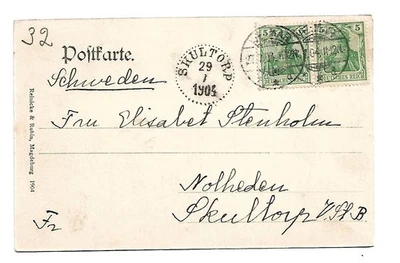 32
Postkarte.
Schweden
SKULTORP
29
7
1904
5
5
DEUTSCHES REICH
Fru Elisabet Stenholm
Nolheden
Skultorp
Fr
Reinicke & Rubin, Magdeburg 1904